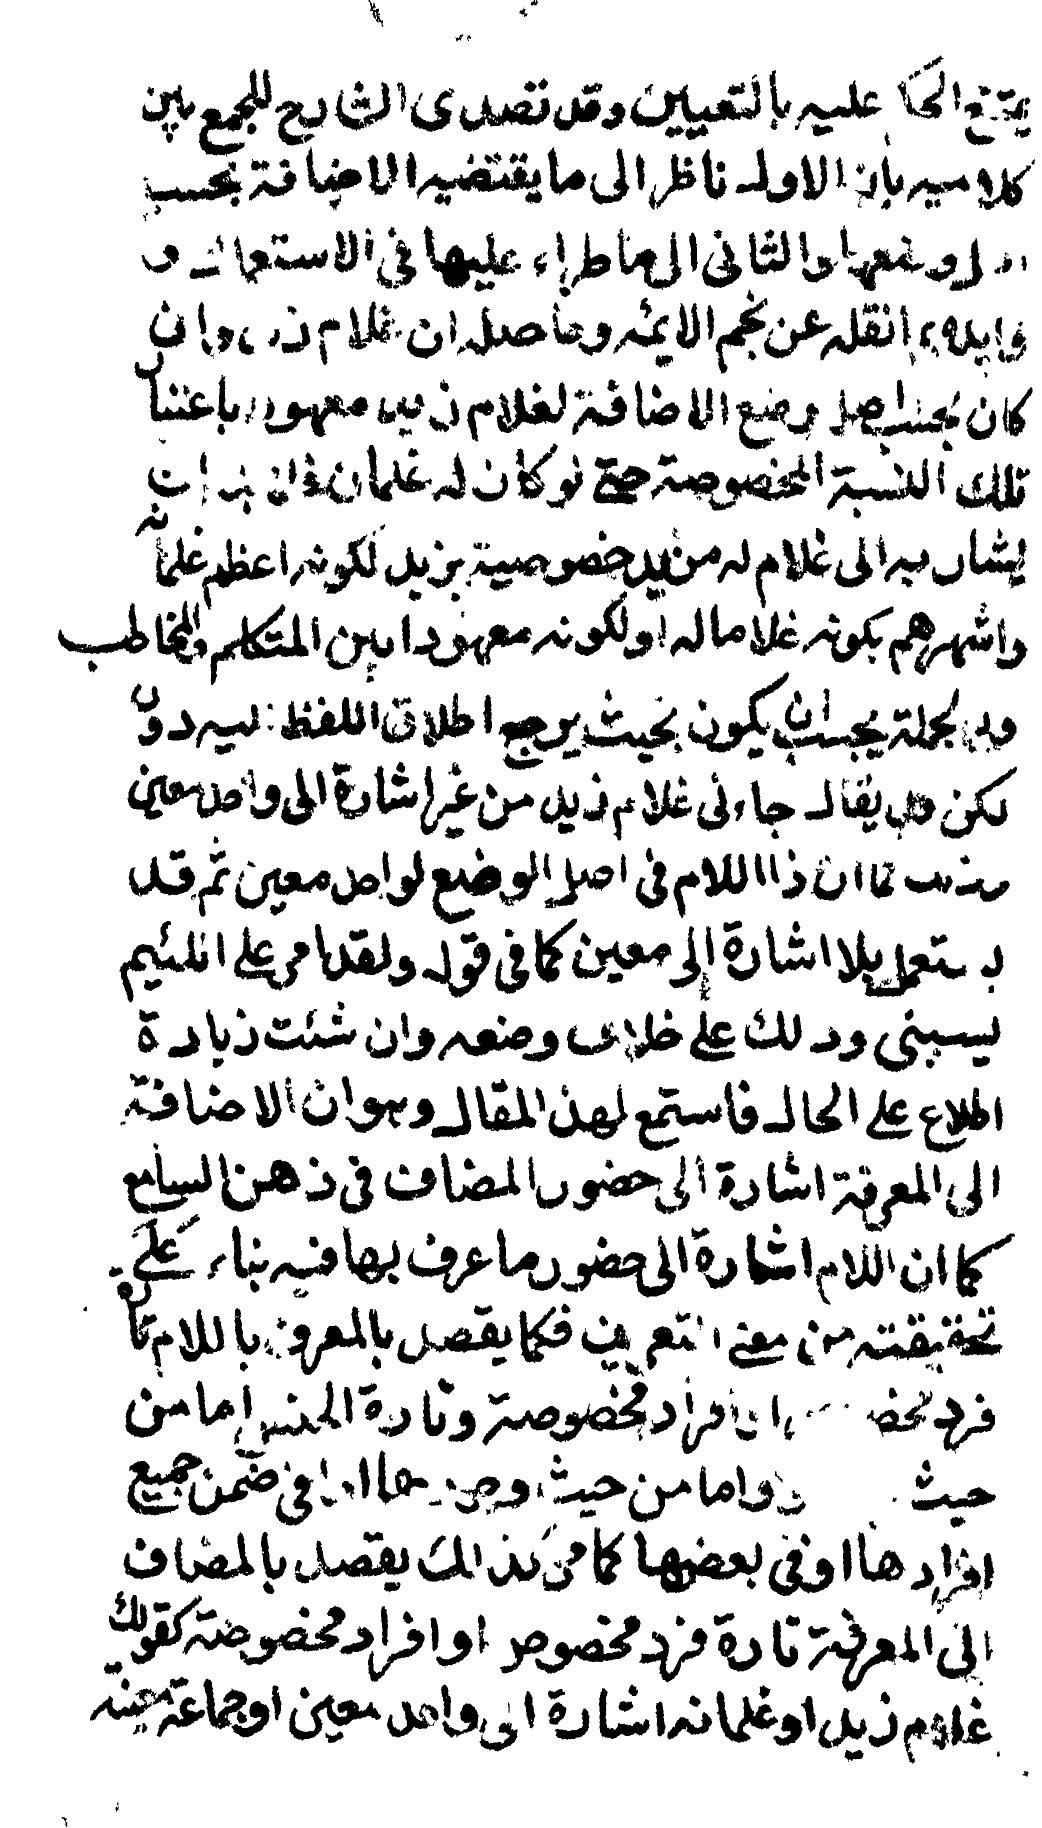 يمتنع الحكم عليه بالتعيين وقد تصدى الشارح للجمع بين
كلاميه بان الاول ناظر الى ما يقتضيه الاضافة بحسب
وضعها والثانى الى ما طراء عليها فى الاستعمال و
وايده بما نقله عن نجم الايمة وحاصله ان غلام زيد وان
كان بحسب اصل وضع الاضافة لغلام زيد معهود باعتبار
تلك النسبة المخصوصة حتى لو كان له غلمان فلا بد ان
يشار به الى غلام له مزيد خصوصية بزيد لكونه اعظم غلمانه
واشهرهم بكونه غلاما له او لكونه معهودا بين المتكلم والمخاطب
وبالجملة يجب ان يكون بحيث يرجع اطلاق اللفظ اليه دون
لكن قد يقال جاءنى غلام زيد من غير اشارة الى واحد معين
وذلك كما ان ذا اللام فى اصل الوضع لواحد معين ثم قد
يستعمل بلا اشارة الى معين كما فى قوله ولقد امر على اللئيم
يسبنى وذلك على خلاف وضعه وان شئت زيادة
اطلاع على الحال فاستمع لهذ المقال وهو ان الاضافة
الى المعرفة اشارة الى حضور المضاف فى ذهن السامع
كما ان اللام اشارة الى حضور ما عرف بها فيه بناء على
تحقيقته من معنى التعريف فكما يقصد بالمعرف باللام تارة
فرد مخصوص او افراد مخصوصة وتارة الجنس اما من
حيث واما من حيث وجودها اما فى ضمن جميع
افرادها او فى بعضها كما مر كذلك يقصد بالمضاف
الى المعرفة تارة فرد مخصوص او افراد مخصوصة كقولك
غلام زيد او غلمانه اشارة الى واحد معين او جماعة معينة